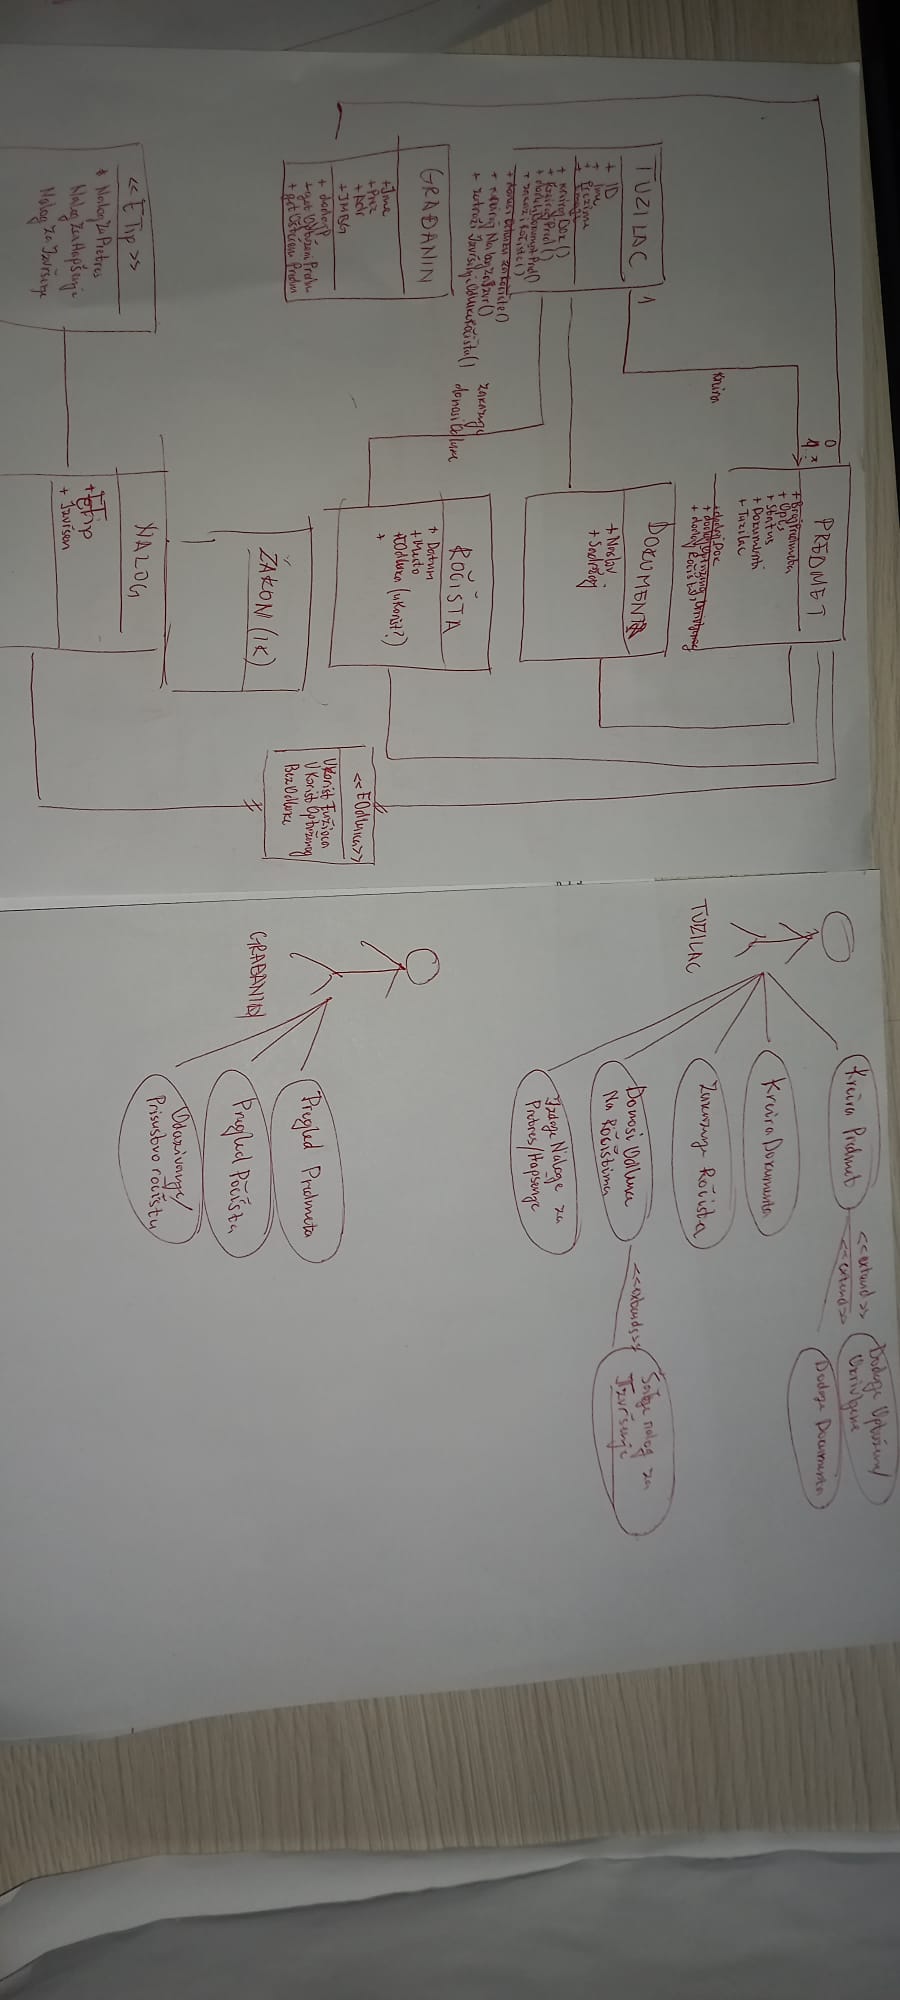 PREDMET
0
1..*
+ BrojPredmeta
+ Opis
+ Status
+ Dokumenti
+ Tuzilac
+ dodajDok
+ dodajOptuženog, Okrivljenog
+ dodaj Ročište
Kreira
TUZILAC
1
+ ID
+ Ime
+ Prezime
+ kreirajDok()
+ KreirajPred()
+ zakaziRočiste()
+ kreiraj NalogZaIzvr()
DOKUMENT
+ Naslov
+ Sadržaj
zakazuje
donosi Odluke
ROČIŠTA
+ Datum
+ Mesto
+ EOdluka (uKorist?)
+
GRAĐANIN
+Ime
+Prez
+Adr
+JMBG
+ dodajP
+get Optuženi Predm
<<EOdluka>>
UKorist Tužioca
UKorist Optuženog
BezOdluke
ZAKON (IK)
<<ETip>>
NalogZaPretres
NalogZaHapšenje
Nalog Za Izvršenje
NALOG
+ETip
+ Izvršen
TUZILAC
Kreira Predmet
<<extend>>
<<extend>>
Dodaje Optužene/
Okrivljene
Dodaje Documenta
Kreira Dokumenta
Zakazuje Ročista
Donosi Odluke
Na Ročištima
<<extends>>
Šalje nalog za
Izvršenje
Izdaje Naloge za
Pretres/Hapšenje
GRAĐANIN
Pregled Predmeta
Pregled Ročišta
Odazivanje/
Prisustvo ročištu